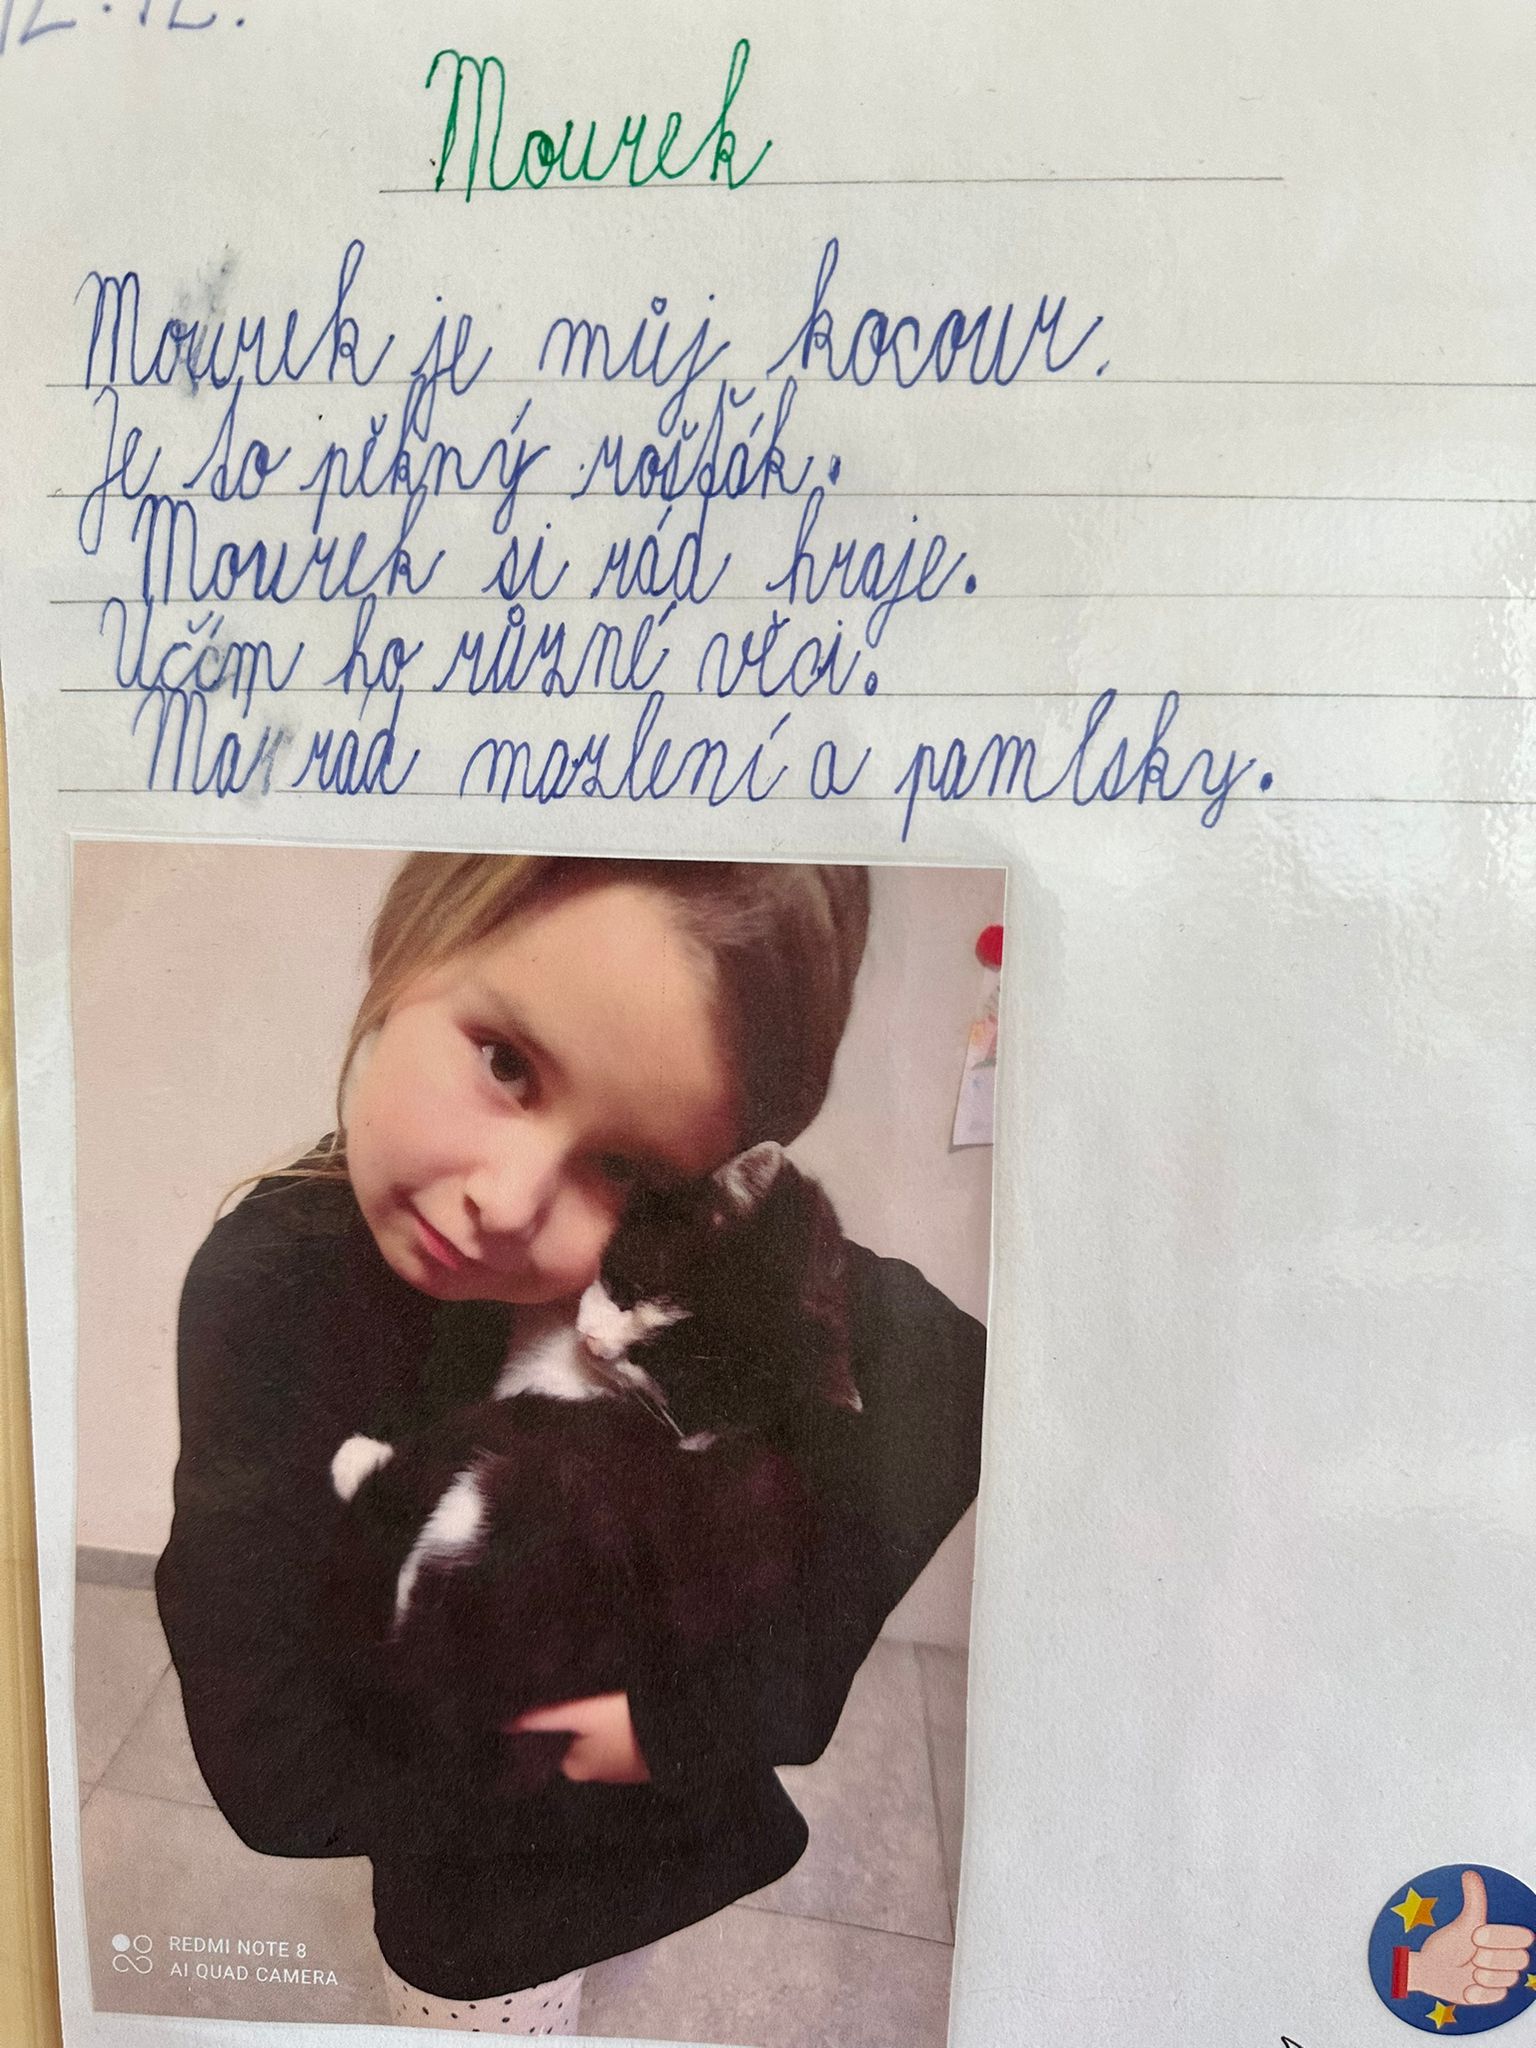 12.12.
Mourek
Mourek je můj kocour.
Je to pěkný rošťák.
Mourek si rád hraje.
Učím ho různé věci.
Má rád mazlení a pamlsky.
REDMI NOTE 8
AI QUAD CAMERA